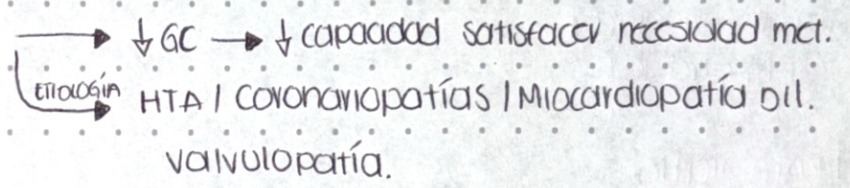 → ↓ GC → ↓ capacidad satisfacer necesidad met.
ETIOLOGÍA → HTA / Coronariopatías / Miocardiopatía Dil.
Valvulopatía.